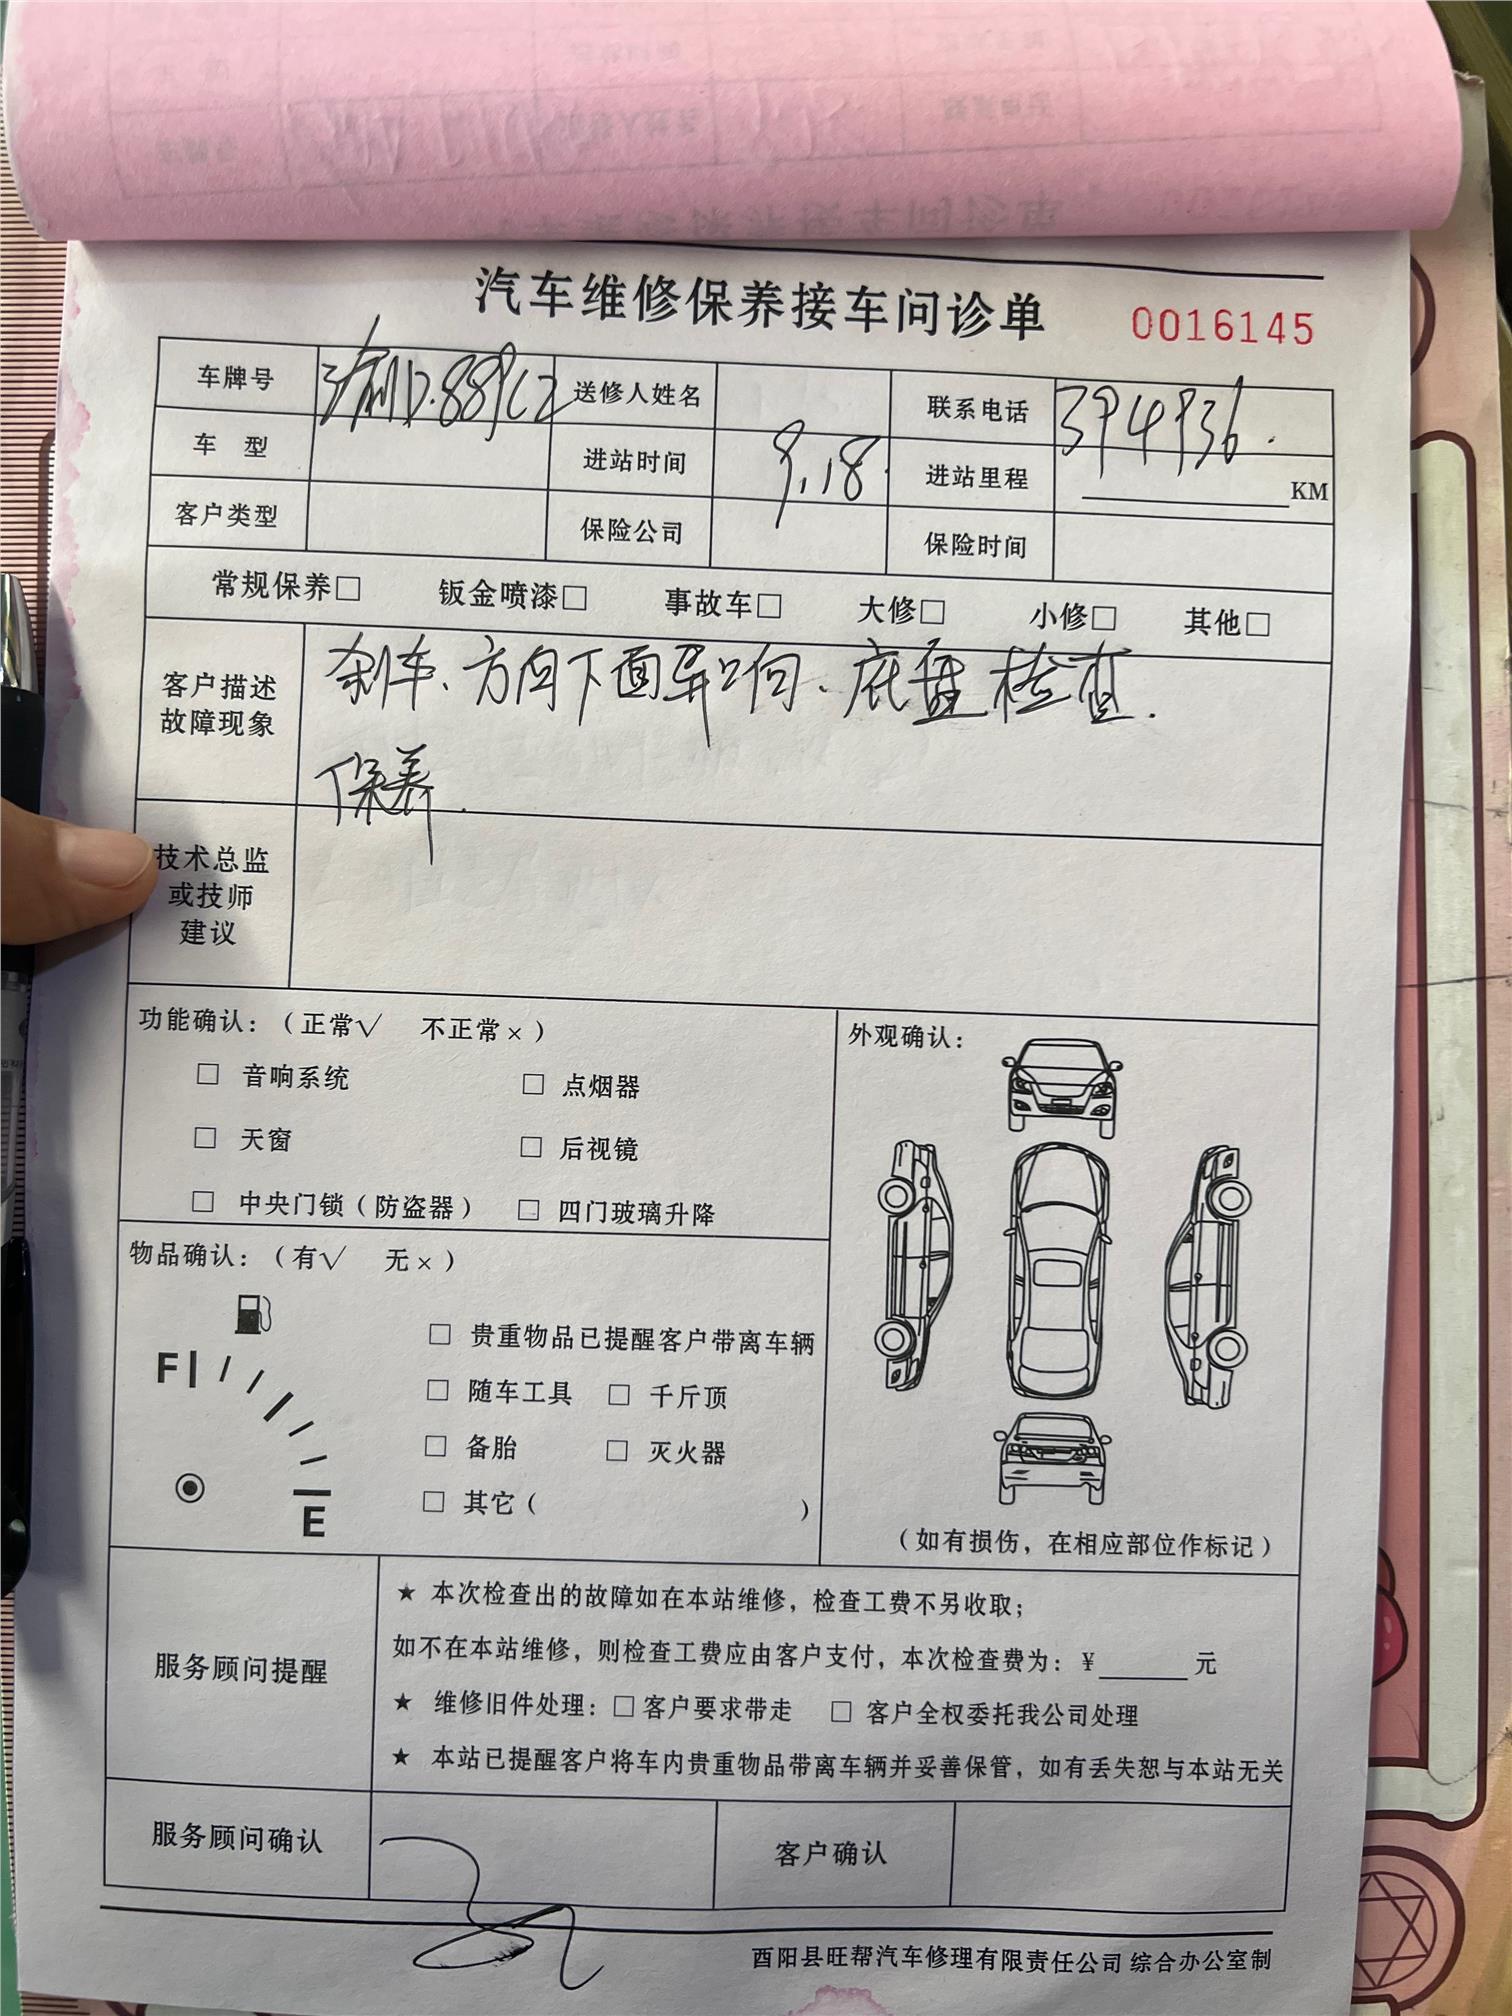 汽车维修保养接车问诊单 0016145
车牌号 送修人姓名 联系电话 394936.
车 型 进站时间 9.18. 进站里程 KM
客户类型 保险公司 保险时间
常规保养□ 钣金喷漆□ 事故车□ 大修□ 小修□ 其他□
客户描述
故障现象
刹车、方向下面异响、底盘检查.
保养.
技术总监
或技师
建议
功能确认：（正常√ 不正常×）
□ 音响系统 □ 点烟器
□ 天窗 □ 后视镜
□ 中央门锁（防盗器） □ 四门玻璃升降
外观确认：
（如有损伤，在相应部位作标记）
物品确认：（有√ 无×）
F
E
□ 贵重物品已提醒客户带离车辆
□ 随车工具 □ 千斤顶
□ 备胎 □ 灭火器
□ 其它（ ）
服务顾问提醒
★ 本次检查出的故障如在本站维修，检查工费不另收取；
如不在本站维修，则检查工费应由客户支付，本次检查费为：¥______元
★ 维修旧件处理：□客户要求带走 □ 客户全权委托我公司处理
★ 本站已提醒客户将车内贵重物品带离车辆并妥善保管，如有丢失恕与本站无关
服务顾问确认 客户确认
酉阳县旺帮汽车修理有限责任公司 综合办公室制